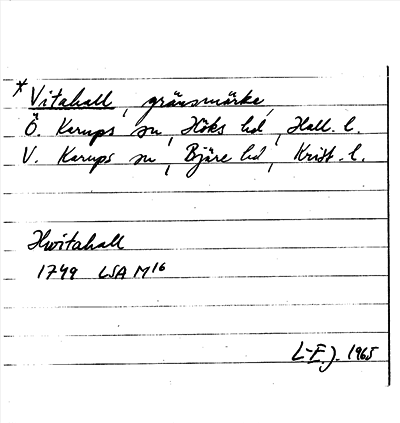 * Vitahall, gränsmärke,
Ö. Karups sn, Höks hd, Hall. l.
V. Karups sn, Bjäre hd, Krist. l.
Hwitahall
1749 LSA M16
L-E. J. 1965